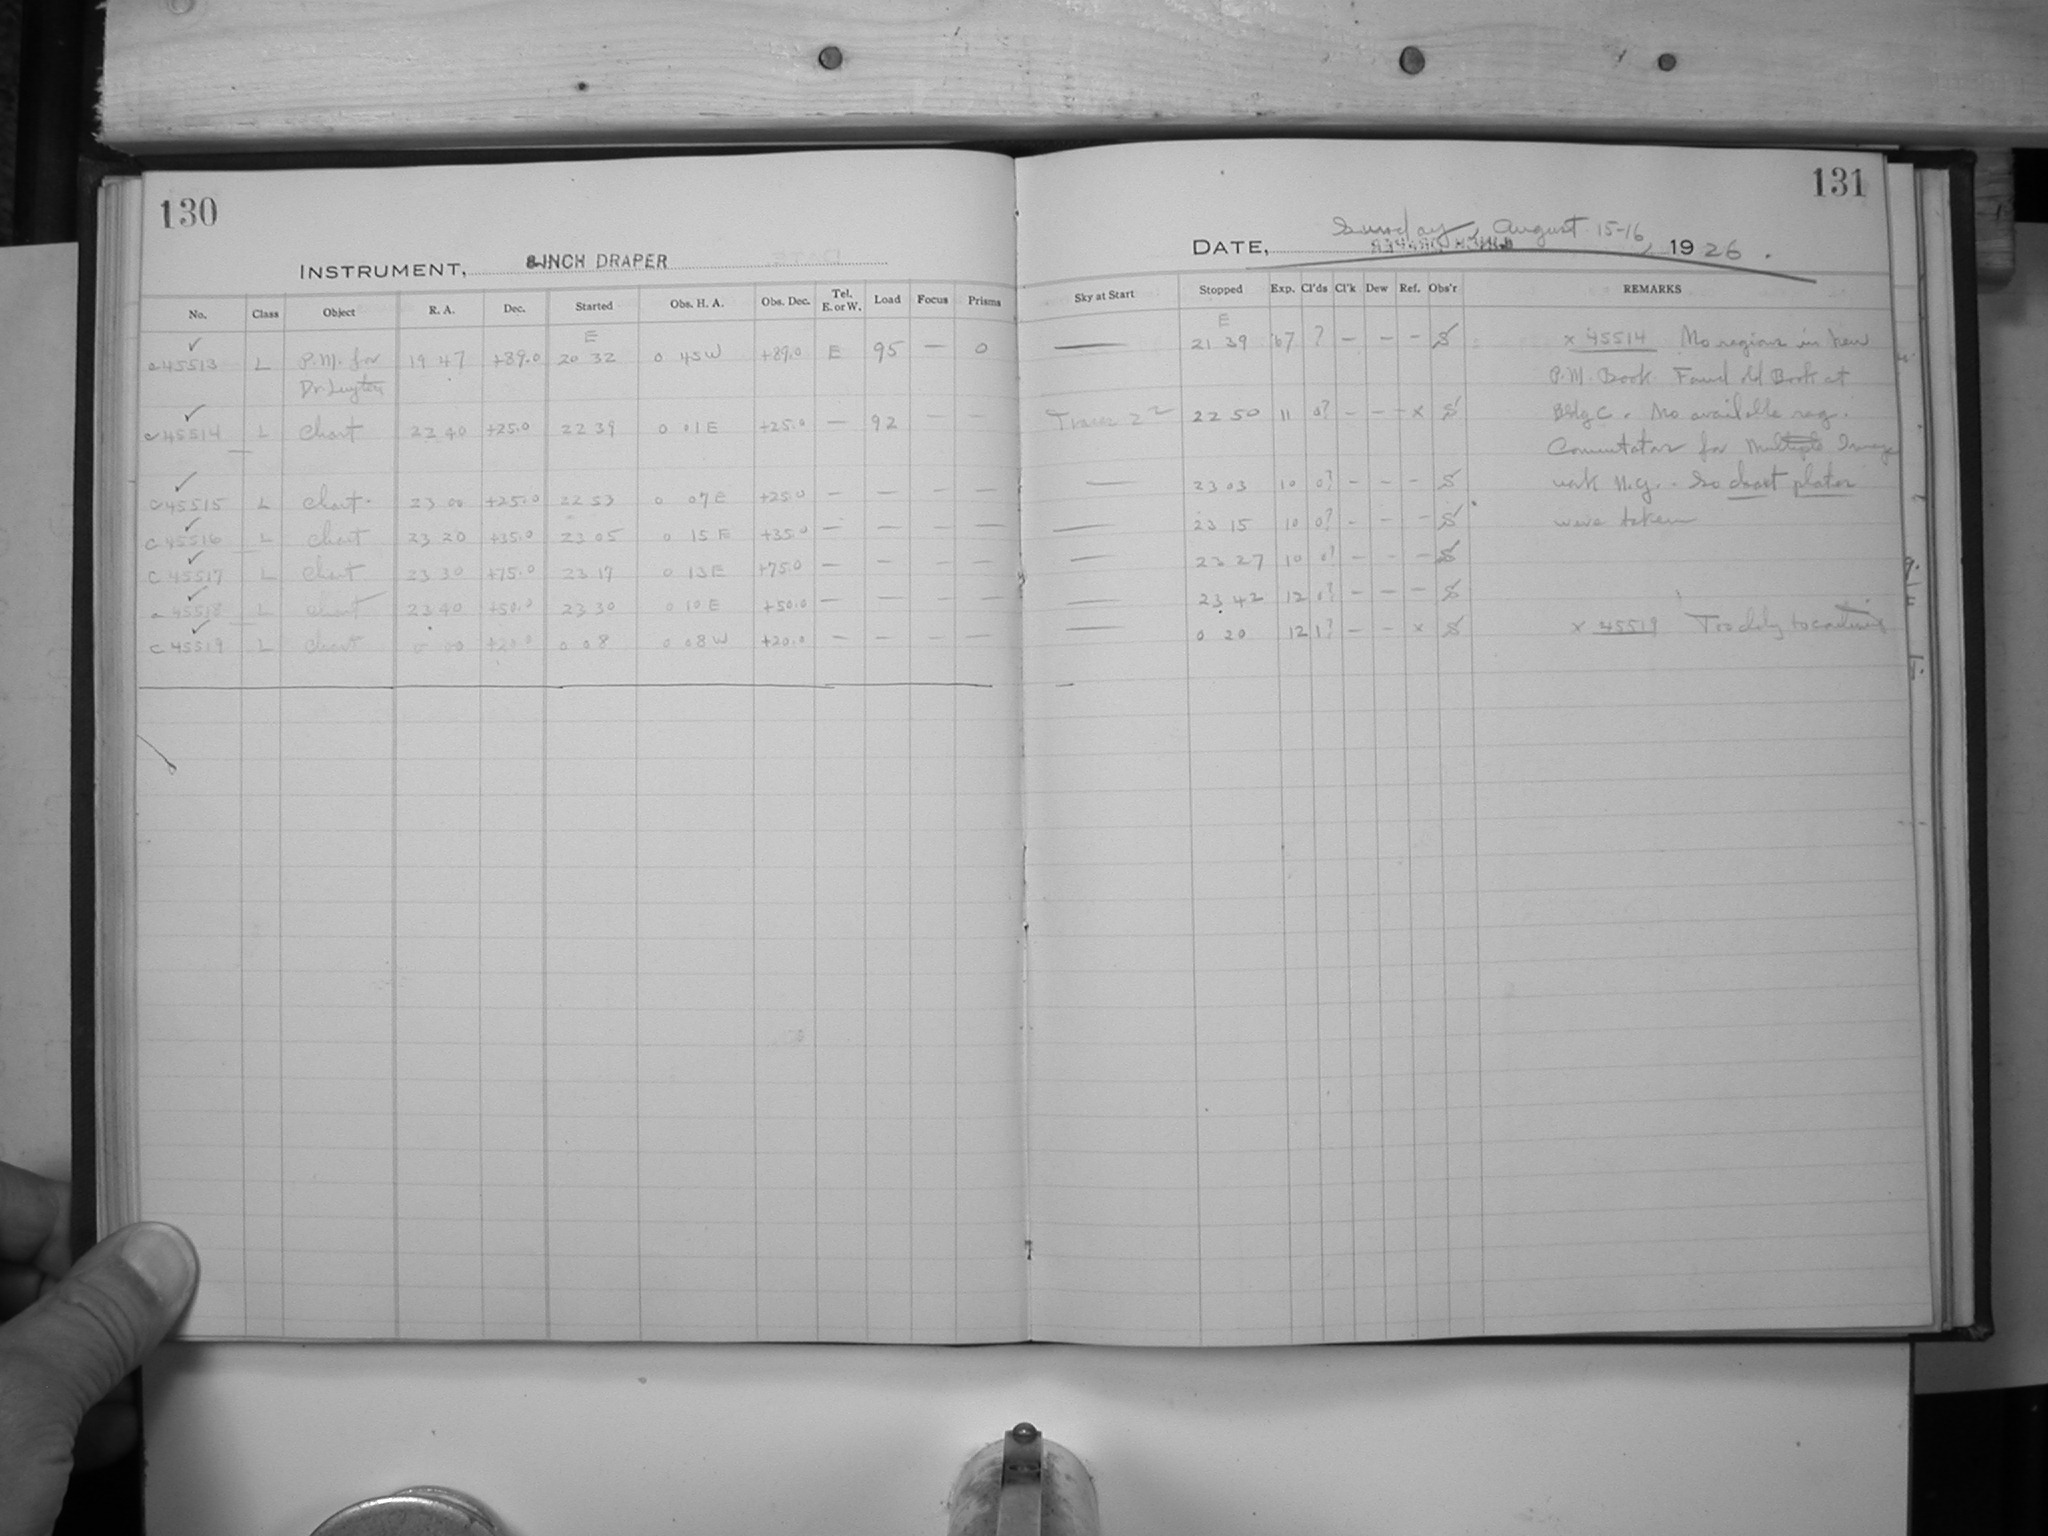 130
INSTRUMENT, 8 INCH DRAPER
No. Class Object R. A. Dec. Started Obs. H. A. Obs. Dec. Tel. E. or W. Load Focus Prisms
E
c 45513 L P.M. for 19 47 +89.0 20 32 0 45 W +89.0 E 95 — 0
Dr. Luyten
c 45514 L Chart 22 40 +25.0 22 39 0 01 E +25.0 — 92 — —
c 45515 L Chart 23 00 +25.0 22 53 0 07 E +25.0 — — — —
c 45516 L Chart 23 20 +35.0 23 05 0 15 E +35.0 — — — —
c 45517 L Chart 23 30 +75.0 23 17 0 13 E +75.0 — — — —
c 45518 L Chart 23 40 +50.0 23 30 0 10 E +50.0 — — — —
c 45519 L Chart 0 00 +20.0 0 08 0 08 W +20.0 — — — —
131
DATE, Sunday, August 15-16, 1926.
Sky at Start Stopped Exp. Cl'ds Cl'k Dew Ref. Obs'r REMARKS
E
— 21 39 67 ? — — — S x 45514 No regions in new
P.M. Book. Found old Book at
22 50 11 0? — — x S Bldg C. No available reg.
Commutator for Multiple Image
— 23 03 10 0? — — — S work N.G. So chart plates
— 23 15 10 0? — — — S were taken
— 23 27 10 0? — — — S
— 23 42 12 0? — — — S
— 0 20 12 1? — — x S x 45519 Too cloudy to continue